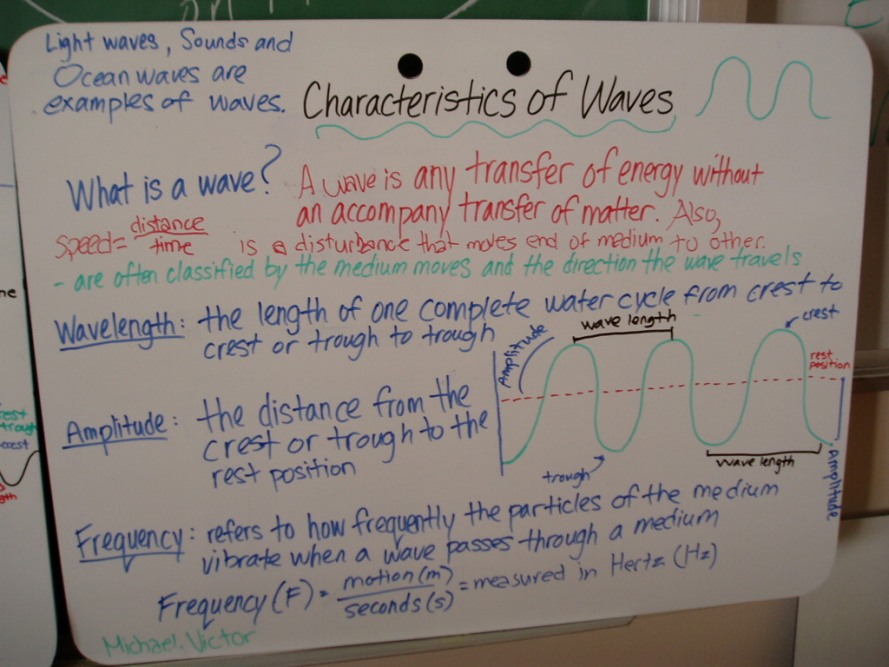 Light waves, Sounds and
Ocean waves are
examples of waves.
Characteristics of Waves
What is a wave?
A wave is any transfer of energy without
an accompany transfer of matter. Also,
Speed = distance
time
is a disturbance that moves end of medium to other.
- are often classified by the medium moves and the direction the wave travels
Wavelength: the length of one complete water cycle from crest to
crest or trough to trough
Amplitude
wave length
crest
rest
position
trough
wave length
Amplitude
Amplitude: the distance from the
crest or trough to the
rest position
Frequency: refers to how frequently the particles of the medium
vibrate when a wave passes through a medium
Frequency (F) = motion (m)
seconds (s)
= measured in Hertz (Hz)
Michael. Victor
rest
trough
crest